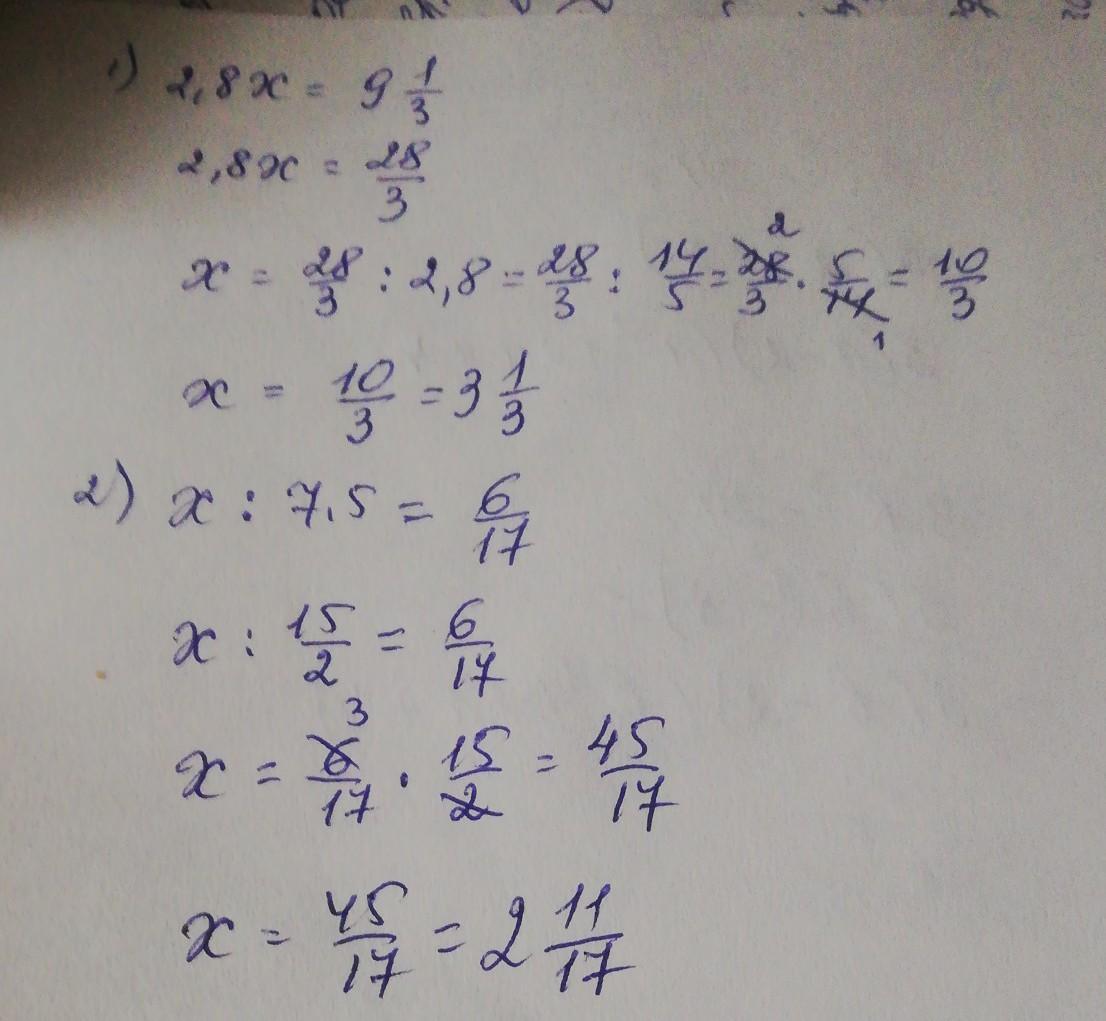 1) 2,8x = 9 1/3
2,8x = 28/3
x = 28/3 : 2,8 = 28/3 : 14/5 = 28/3 2 · 5/14 1 = 10/3
x = 10/3 = 3 1/3
2) x : 7,5 = 6/17
x : 15/2 = 6/17
x = 6/17 3 · 15/2 = 45/17
x = 45/17 = 2 11/17